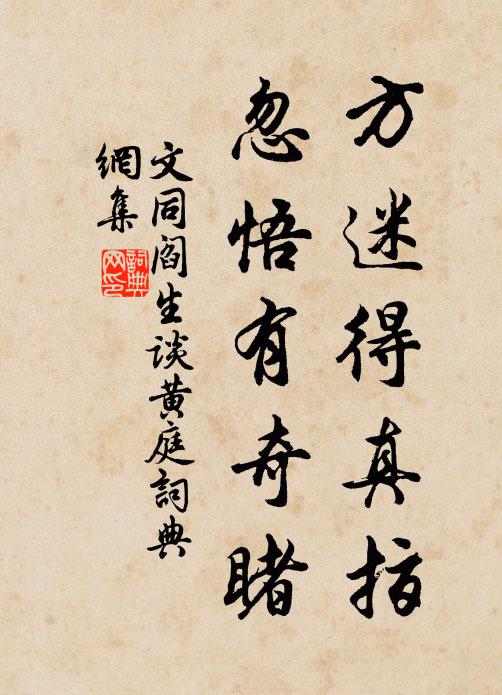 方迷得真指
忽悟有奇睹
文同阎生谈黄庭詞典
網集
詞典
网印